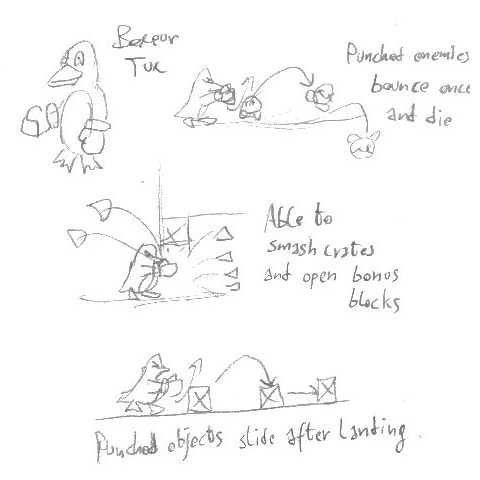 Boxeur
Tux
Punched enemies
bounce once
and die
Able to
smash crates
and open bonus
blocks
Punched objects slide after landing.